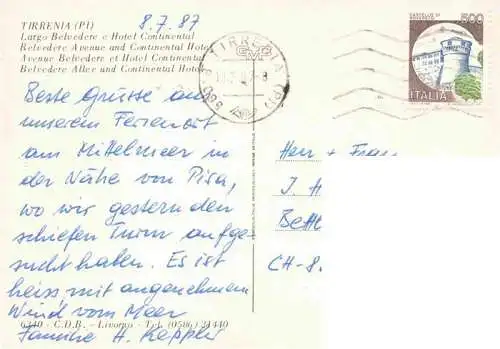 TIRRENIA (PI)
8.7.87
Largo Belvedere e Hotel Continental
Belvedere Avenue and Continental Hotel
Avenue Belvedere et Hotel Continental
Belvedere Allee und Continental Hotel
TIRRENIA (PI)
CASTELLO DI
500
ITALIA
Beste Grüsse aus
unserem Ferienort
am Mittelmeer in
der Nähe von Pisa,
wo wir gestern den
schiefen Turm aufge-
sucht haben. Es ist
heiss mit angenehmem
Wind vom Meer
Familie H. Keppler
Herr + Frau
J. H
Bettl
CH-8
6440 - C.D.B. - Livorno - Tel. (0586) 21440